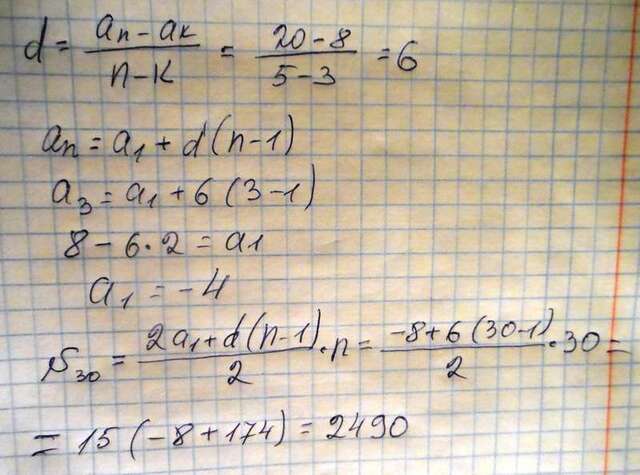 d = (aₙ - aₖ)/(n - к) = (20 - 8)/(5 - 3) = 6
aₙ = a₁ + d(n-1)
a₃ = a₁ + 6(3-1)
8 - 6·2 = a₁
a₁ = -4
S₃₀ = (2a₁ + d(n-1))/2 · n = (-8 + 6(30-1))/2 · 30 =
= 15(-8 + 174) = 2490